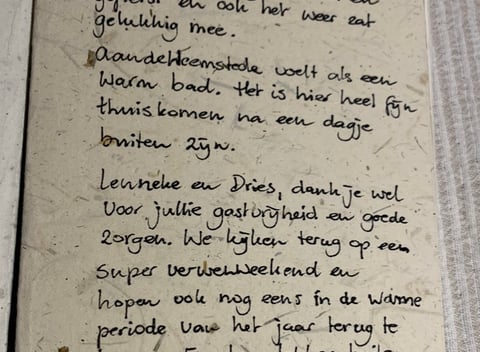 en ook het weer zat
gelukkig mee.
Aandeheemstede voelt als een
warm bad. Het is hier heel fijn
thuiskomen na een dagje
buiten zijn.
Lenneke en Dries, dank je wel
voor jullie gastvrijheid en goede
zorgen. We kijken terug op een
super verwenweekend en
hopen ook nog eens in de warme
periode van het jaar terug te